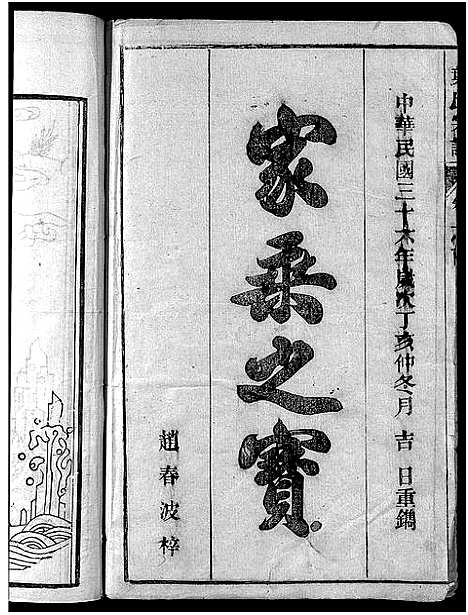 中華民國三十六年歲次丁亥仲冬月吉日重鐫
家乘之寶
趙春波梓